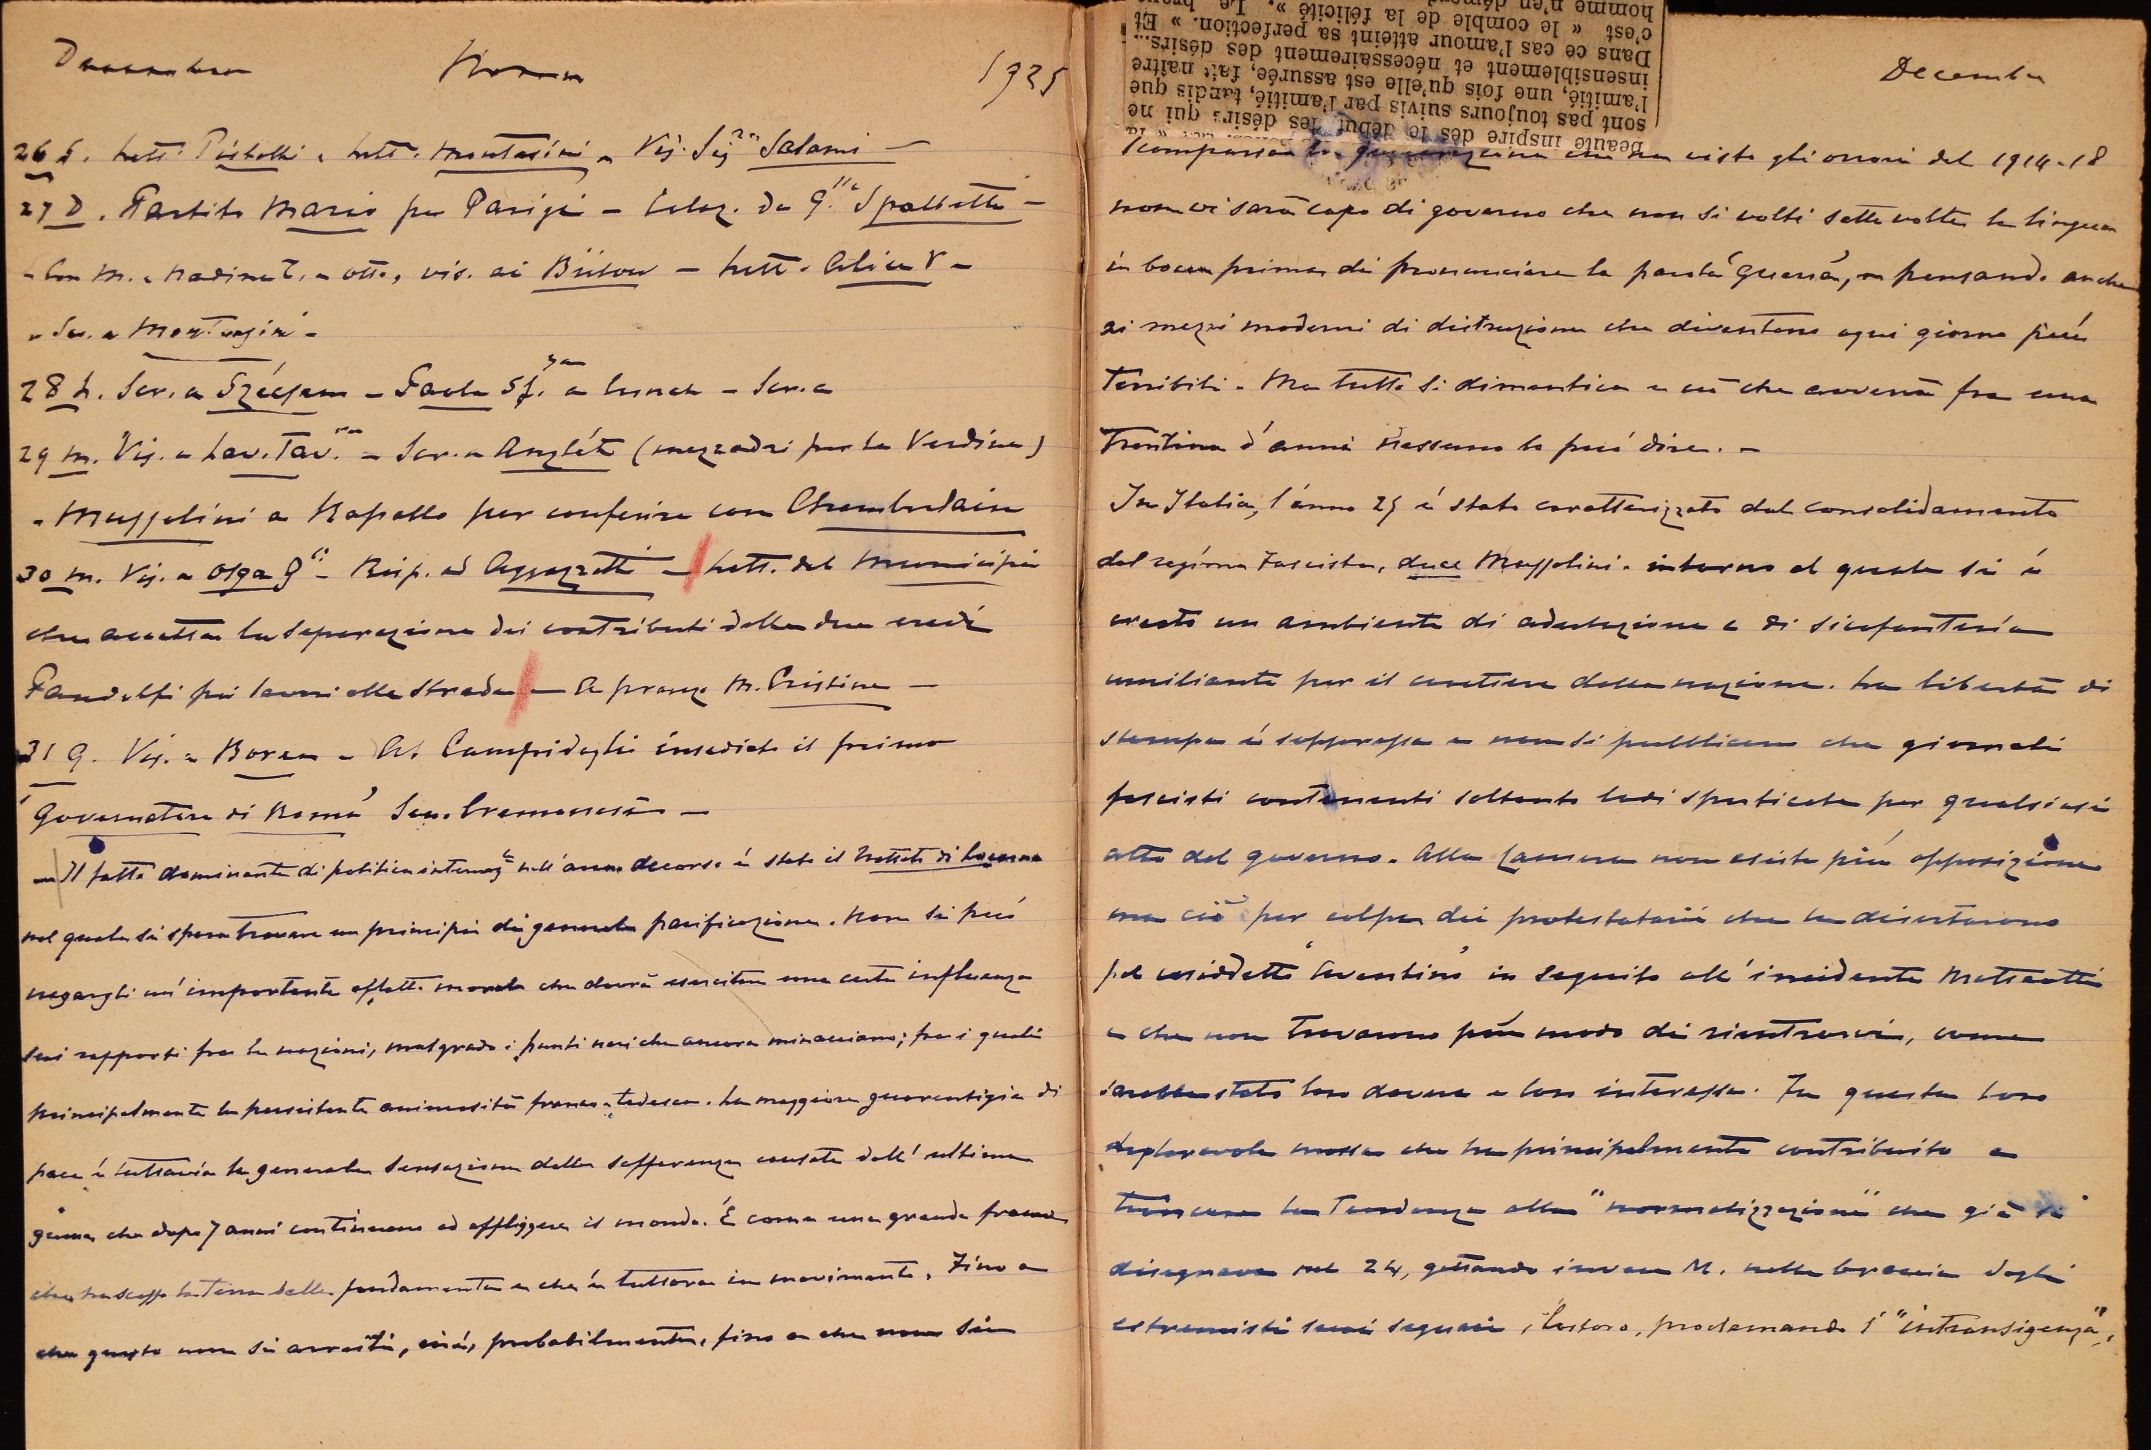 Decembre Roma 1925
26 S. Lett. Pistolli - Lett. Montasini - Vis. Sig.ra Salami -
27 D. Partito Mario per Parigi - Colaz. da G. Spalletti -
- Con M. e Nadine T. e Otto, vis. ai Bülow - Lett. Alice V -
- Scr. a Montasini -
28 L. Scr. a Szécsen - Paola Sf. a lunch - Scr. a
29 M. Vis. a Lav. Tav. - Scr. a Anzléti (mezzadri per la Verdina)
- Mussolini a Rapallo per conferire con Chamberlain
30 M. Vis. a Olga - Risp. ad Aggazzotti - Lett. del Municipio
che accetta la separazione dei contributi delle due eredi
Pandolfi pei lavori alla strada - A pranzo M. Cristina -
31 G. Vis. a Borea - Al Campidoglio insediato il primo
"Governatore di Roma" Sen. Cremonesi -
- Il fatto dominante di politica internaz.le nell'anno decorso è stato il trattato di Locarno
nel quale si spera trovare un principio di generale pacificazione. Non si può
negargli un'importante effetto morale che dovrà esercitare una certa influenza
sui rapporti fra le nazioni, malgrado i punti neri che ancora minacciano; fra i quali
principalmente la persistente animosità franco-tedesca. La maggiore guarentigia di
pace è tuttavia la generale sensazione delle sofferenze causate dall'ultima
guerra che dopo 7 anni continuano ad affliggere il mondo. È come una grande frana
che ha scosso la terra dalle fondamenta e che è tuttora in movimento. Fino a
che questo non si arresti, cioè, probabilmente, fino a che non sia
Decembre
beauté inspire dès le début des désirs qui ne
sont pas toujours suivis par l'amitié, tandis que
l'amitié, une fois qu'elle est assurée, fait naître
insensiblement et nécessairement des désirs...
Dans ce cas l'amour atteint sa perfection. » Et
c'est « le comble de la félicité ». Le
homme n'en
scomparsa la generazione che ha visto gli orrori del 1914-18
non vi sarà capo di governo che non si volti sette volte la lingua
in bocca prima di pronunciare la parola "guerra", e pensando anche
ai mezzi moderni di distruzione che diventano ogni giorno più
terribili. Ma tutto si dimentica e ciò che avverrà fra una
trentina d'anni nessuno lo può dire. -
In Italia, l'anno 25 è stato caratterizzato dal consolidamento
del regime Fascista, duce Mussolini. intorno al quale si è
creato un ambiente di adulazione e di sicofanteria
umiliante per il carattere della nazione. La libertà di
stampa è soppressa e non si pubblicano che giornali
fascisti contenenti soltanto lodi sperticate per qualsiasi
atto del governo. Alla Camera non esiste più opposizione
ma ciò per colpa dei protestatari che la disertarono
pel cosiddetto "Aventino" in seguito all'incidente Matteotti
e che non trovarono più modo di rientrarvi, come
sarebbe stato loro dovere e loro interesse. Fu questa loro
deplorevole mossa che ha principalmente contribuito a
troncare la tendenza alla "normalizzazione" che già si
disegnava nel 24, gettando invece M. nelle braccia degli
estremisti suoi seguaci, costoro, proclamando l'"intransigenza",